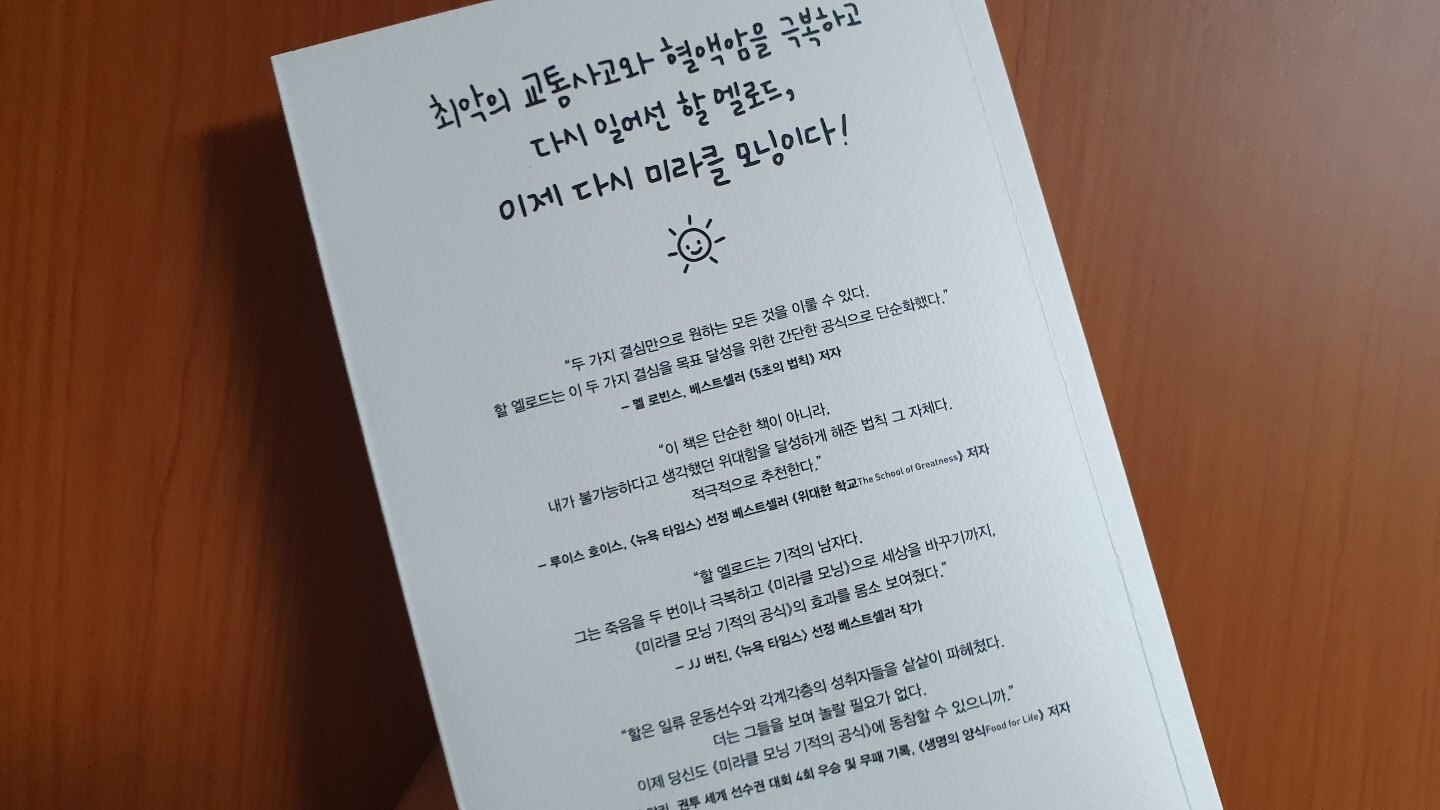 최악의 교통사고와 혈액암을 극복하고
다시 일어선 할 엘로드,
이제 다시 미라클 모닝이다!
“두 가지 결심만으로 원하는 모든 것을 이룰 수 있다.
할 엘로드는 이 두 가지 결심을 목표 달성을 위한 간단한 공식으로 단순화했다.”
– 멜 로빈스, 베스트셀러 《5초의 법칙》 저자
“이 책은 단순한 책이 아니라,
내가 불가능하다고 생각했던 위대함을 달성하게 해준 법칙 그 자체다.
적극적으로 추천한다.”
– 루이스 호이스, 〈뉴욕 타임스〉 선정 베스트셀러 《위대한 학교The School of Greatness》 저자
“할 엘로드는 기적의 남자다.
그는 죽음을 두 번이나 극복하고 《미라클 모닝》으로 세상을 바꾸기까지,
《미라클 모닝 기적의 공식》의 효과를 몸소 보여줬다.”
– JJ 버진, 〈뉴욕 타임스〉 선정 베스트셀러 작가
“할은 일류 운동선수와 각계각층의 성취자들을 샅샅이 파헤쳤다.
더는 그들을 보며 놀랄 필요가 없다.
이제 당신도 《미라클 모닝 기적의 공식》에 동참할 수 있으니까.”
권투 세계 선수권 대회 4회 우승 및 무패 기록, 《생명의 양식Food for Life》 저자